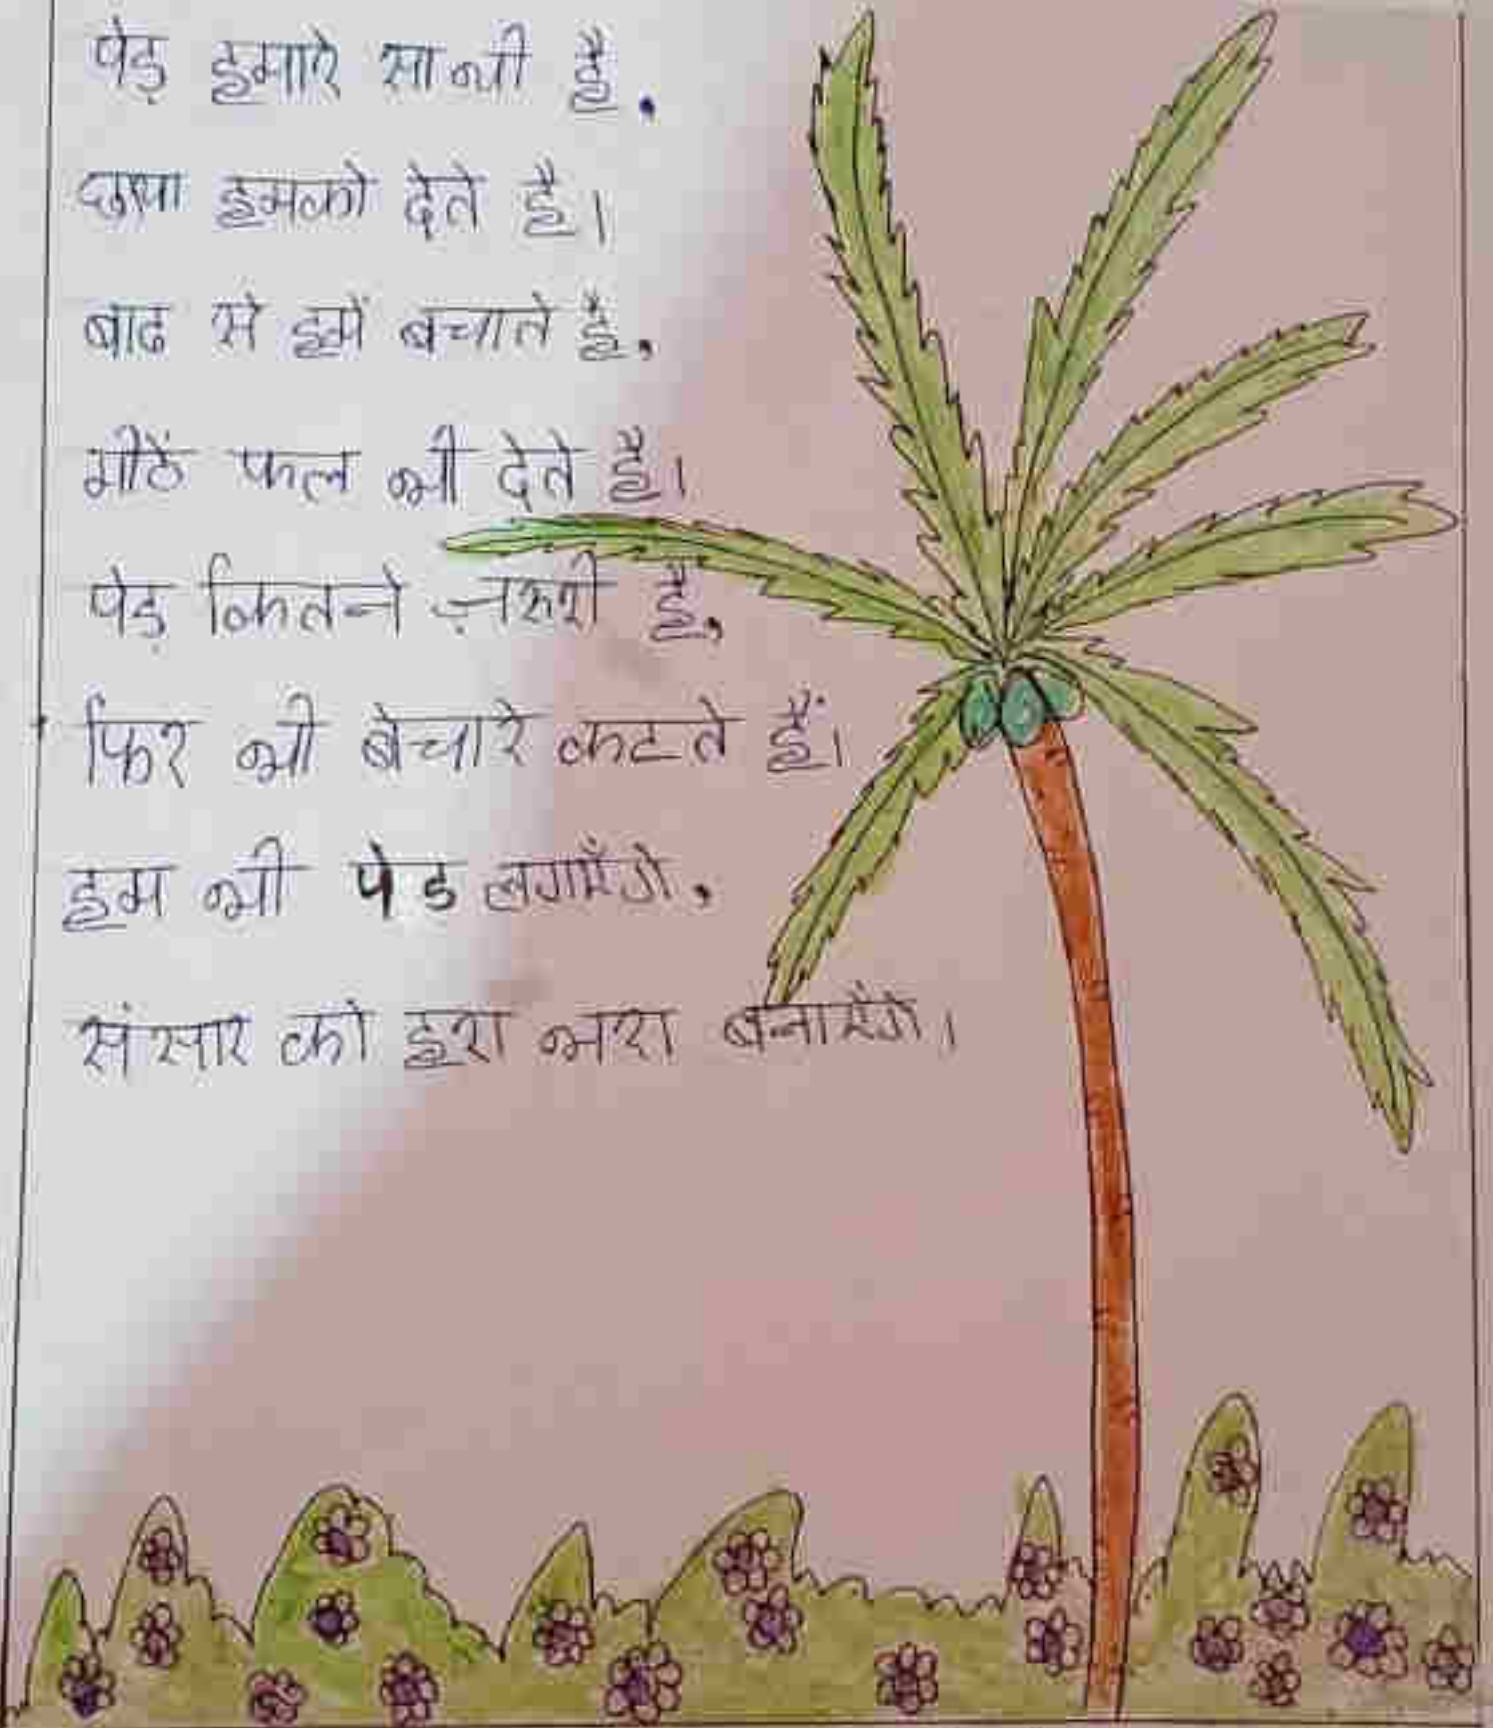 पेड़ हमारे साथी है.
छाया हमको देते है।
बाढ से हमें बचाते है,
मीठें फल भी देते है।
पेड़ कितने ज़रूरी है,
फिर भी बेचारे कटते हैं।
हम भी पेड लगाएँगे,
संसार को हरा भरा बनाएंगे।